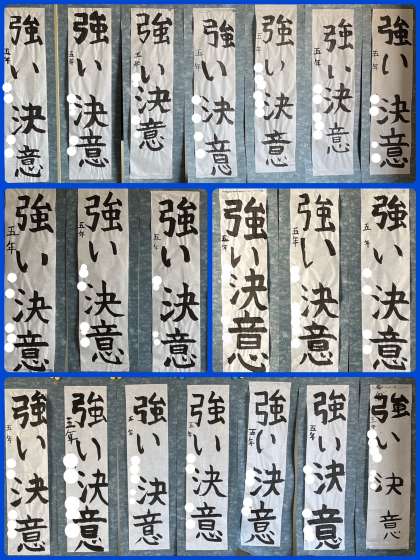 強い決意
五年
強い決意
五年
強い決意
強い決意
五年
強い決意
五年
強い決意
五年
強い決意
五年
強い決意
五年
強い決意
五年
強い決意
五年
強い決意
五年
強い決意
五年
強い決意
五年
強い決意
五年
強い決意
五年
強い決意
強い決意
五年
強い決意
五年
強い決意
五年
強い決意